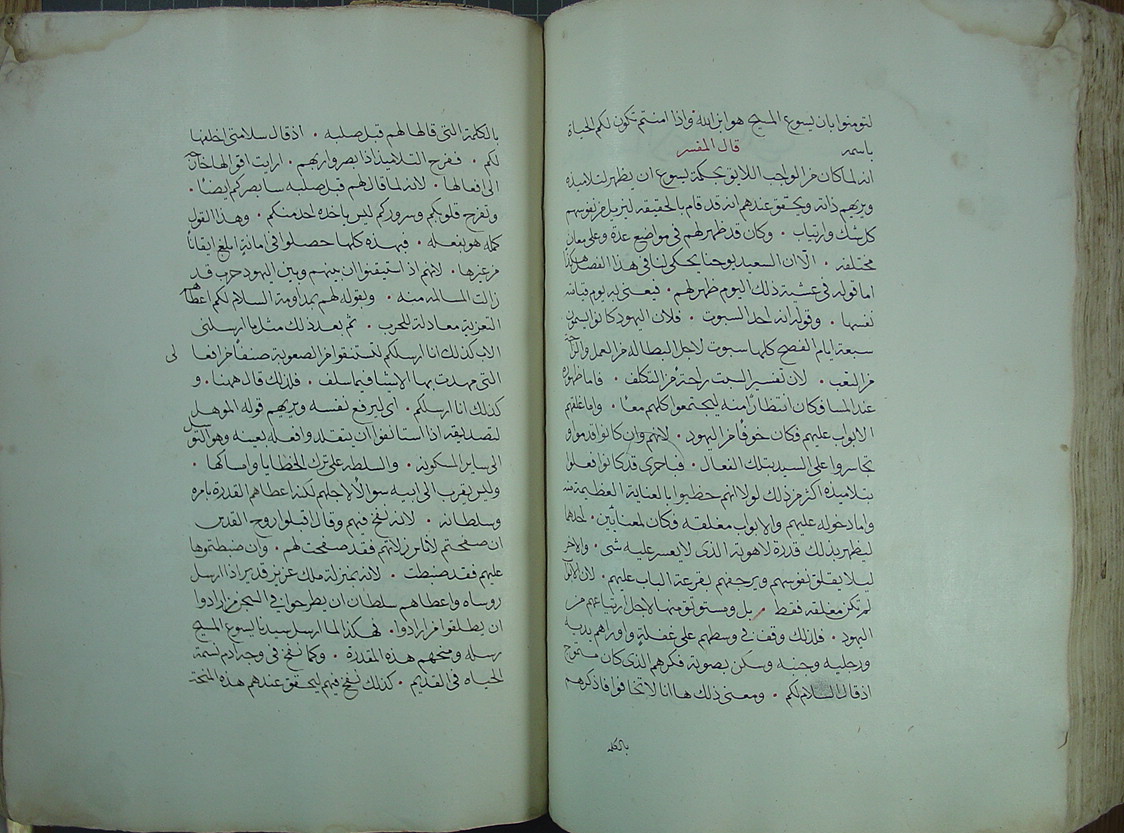 لتومنوا بان يسوع المسيح هو ابن الله واذا امنتم تكون لكم الحياة
باسمه قال المفسر
انه لما كان من الواجب اللايق بحكمة يسوع ان يظهر لتلاميذه
ويريهم ذاته ويحقق عندهم انه قد قام بالحقيقه ليزيل من نفوسهم
كل شك وارتياب . وكان قد ظهر لهم في مواضع عدة وعلى معان
مختلفه . الا ان السعيد يوحنا يحكي لنا في هذا الفصل هكذا
اما قوله في عشية ذلك اليوم ظهر لهم . فيعنى به يوم قيامته
نفسها . وقوله انه احد السبوت . فلان اليهود كانوا يسمون
سبعة ايام الفصح كلها سبوت لاجل البطاله من العمل والراحة
من التعب . لان تفسير السبت راحة من التكلف . فاما ظهوره
عند المسا فكان انتظارًا منه ليجتمعوا كلهم معًا . واما غلقهم
الابواب عليهم فكان خوفًا من اليهود . لانهم وان كانوا قد موا و
تجاسروا على السيد بتلك الفعال . فباحرى قد كانوا فعلوا
بتلاميذه اكثر من ذلك لولا انهم حظيوا بالعناية العظيمة منه
واما دخوله عليهم والابواب مغلقه فكان لمعنايين . احدها
ليظهر بذلك قدرة لاهوته الذي لا يعسر عليه شى . والاخر
ليلا يقلق نفوسهم ويرجفهم بقرعة الباب عليهم . لان الابواب
لم تكن مغلقه فقط . بل ومستوثق منها لاجل ارتياعهم من
اليهود . فلذلك وقف في وسطهم على غفلة واوراهم يديه
ورجليه وجنبه وسكن بصوته فكرهم الذي كان
اذ قال السلام لكم . ومعنى ذلك ها انا لا تخافوا فاذكرهم
بالكلمه
بالكلمة التي قالها لهم قبل صلبه . اذ قال سلامتي اخلفها
لكم . ففرح التلاميذ اذ ابصروا ربهم . ارايت اقوالها خارجة
الى افعالها . لانه لما قال لهم قبل صلبه سابصركم ايضًا .
وتفرح قلوبكم وسروركم ليس ياخذه احد منكم . وهذا القول
كمله هو بفعله . فبهذه كلها حصلوا في امانة ابلغ ايقانًا
من غيرها . لانهم اذ استيقنوا ان بينهم وبين اليهود حرب قد
زالت المسالمه منه . وبقوله لهم بمداومة السلام لكم اعطاهم
التعزية معادلة للحرب . ثم بعد ذلك مثل ما ارسلني
الاب كذلك انا ارسلكم لتستنقوا من الصعوبة صنفًا من افعا لى
التي مهدت بها الاشيا فيما سلف . فلذلك قال ههنا . و
كذلك انا ارسلكم . اي ليرفع نفسه ويريهم قوله الموهل
لتصديقه اذا استانفوا ان يتقلدوا فعله بعينه وهو
الى ساير المسكونه . والسلطه على ترك الخطايا وامساكها .
وليس يقرب الى ابيه سوالًا لاجلهم لكنه اعطاهم القدرة بامره
وسلطانه . لانه نفخ فيهم وقال اقبلوا روح القدس
ان صفحتم لاناس زلاتهم فقد صفحت لهم . وان ضبطتموها
عليهم فقد ضبطت . لانه بمنزلة ملك عزيز قدير اذا ارسل
روساه واعطاهم سلطان ان يطرحوا في السجن من ارادوا
ان يطلقوا من ارادوا . فهكذا لما ارسل سيدنا يسوع المسيح
رسله ومنحهم هذه المقدرة . وكما نفخ في وجه ادم نسمة
الحياه في القديم . كذلك نفخ فيهم ليحقق عندهم هذه المنحة